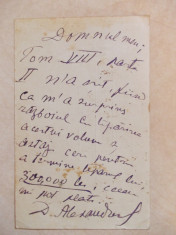 Domnul meu,
Tom VIII, partea
II n'a eşit, fiind
că m'a surprins
războiul cu tipărirea
acestui volum şi
astăzi cer pentru
a termina tiparul lui,
300,000 lei, ceeace
nu pot plăti.